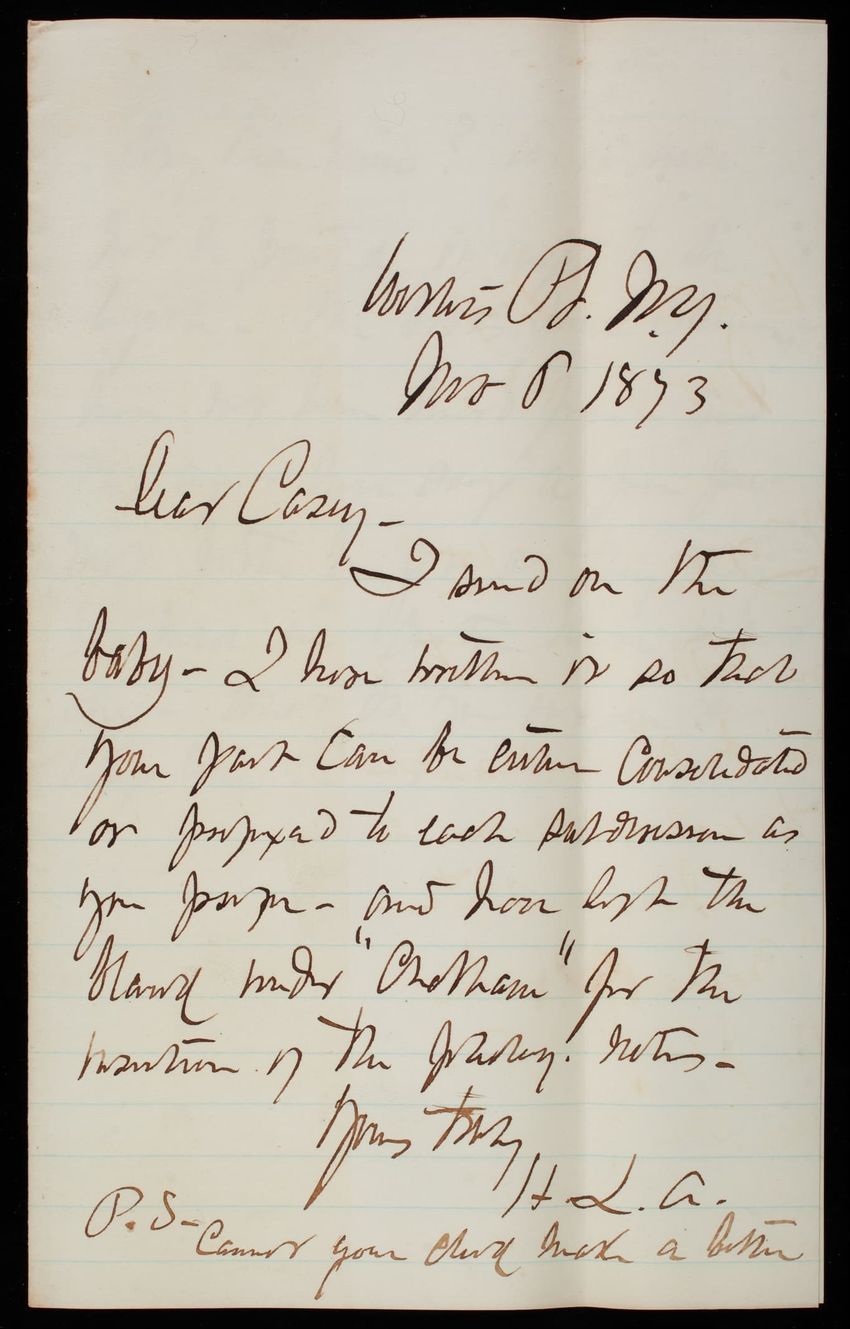 Willets Pt. N.Y.
Nov 6 1873
Dear Casey-
I send on the
baby- I have written it so that
your part can be either consolidated
or prefixed to each subdivision as
you prefer- and have left the
blank under "Chatham" for the
insertion of the notes-
Yours truly
H. L. A.
P.S- Cannot your clerk make a better